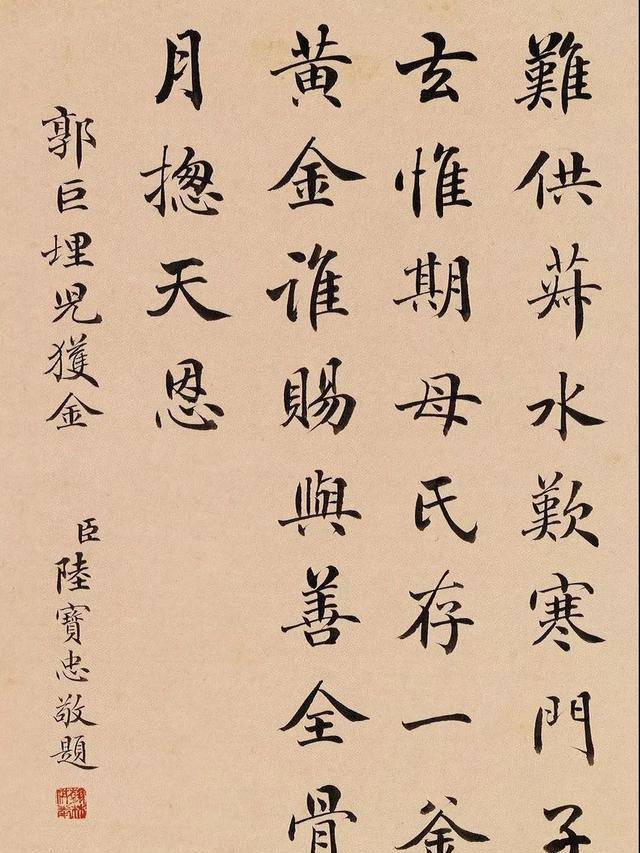 難供菽水歎寒門子
玄惟期母氏存一釜
黄金誰賜與善全骨
月揔天恩
郭巨埋兒獲金
臣陸寶忠敬題